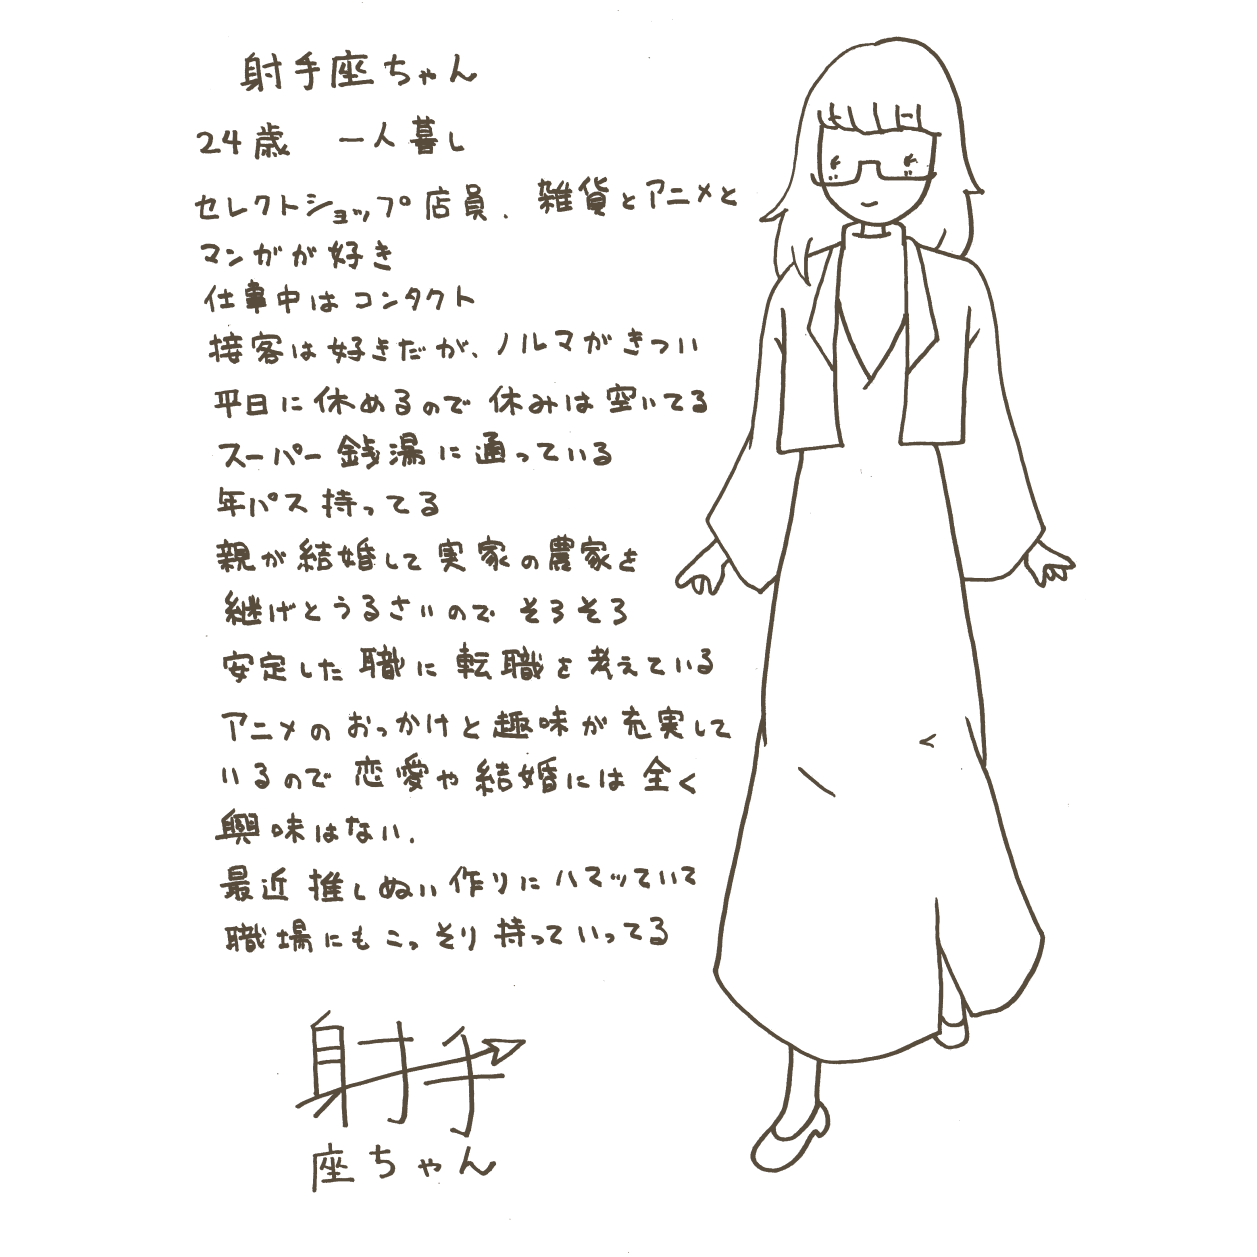 射手座ちゃん
24歳 一人暮し
セレクトショップ店員. 雑貨とアニメと
マンガが好き
仕事中はコンタクト
接客は好きだが、ノルマがきつい
平日に休めるので 休みは空いてる
スーパー銭湯に通っている
年パス持ってる
親が結婚して実家の農家を
継げとうるさいので そろそろ
安定した職に転職を考えている
アニメのおっかけと趣味が充実して
いるので恋愛や結婚には全く
興味はない.
最近推しぬい作りにハマッていて
職場にもこっそり持っていってる
射手
座ちゃん